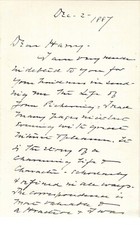 Dec. 2 1887
Dear Harry.
I am very much
in debted to you for
your kindness in send
ing me the Life of
John
many pages in it last
evening with great
interest & pleasure. It
is the story of a
charming life &
character. Scholarly
& refined in all ways.
The correspondence is
most
attractive & I am